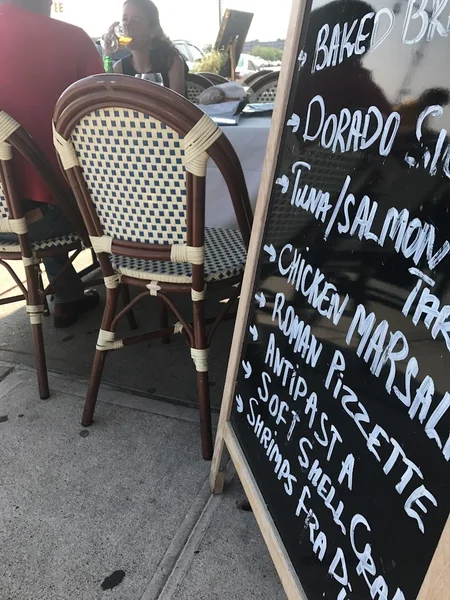 BAKED BR
DORADO
TUNA/SALMON
TAR
CHICKEN MARSAL
ROMAN PIZZETTE
ANTIPASTA
SOFT SHELL CRA
SHRIMPS FRA D